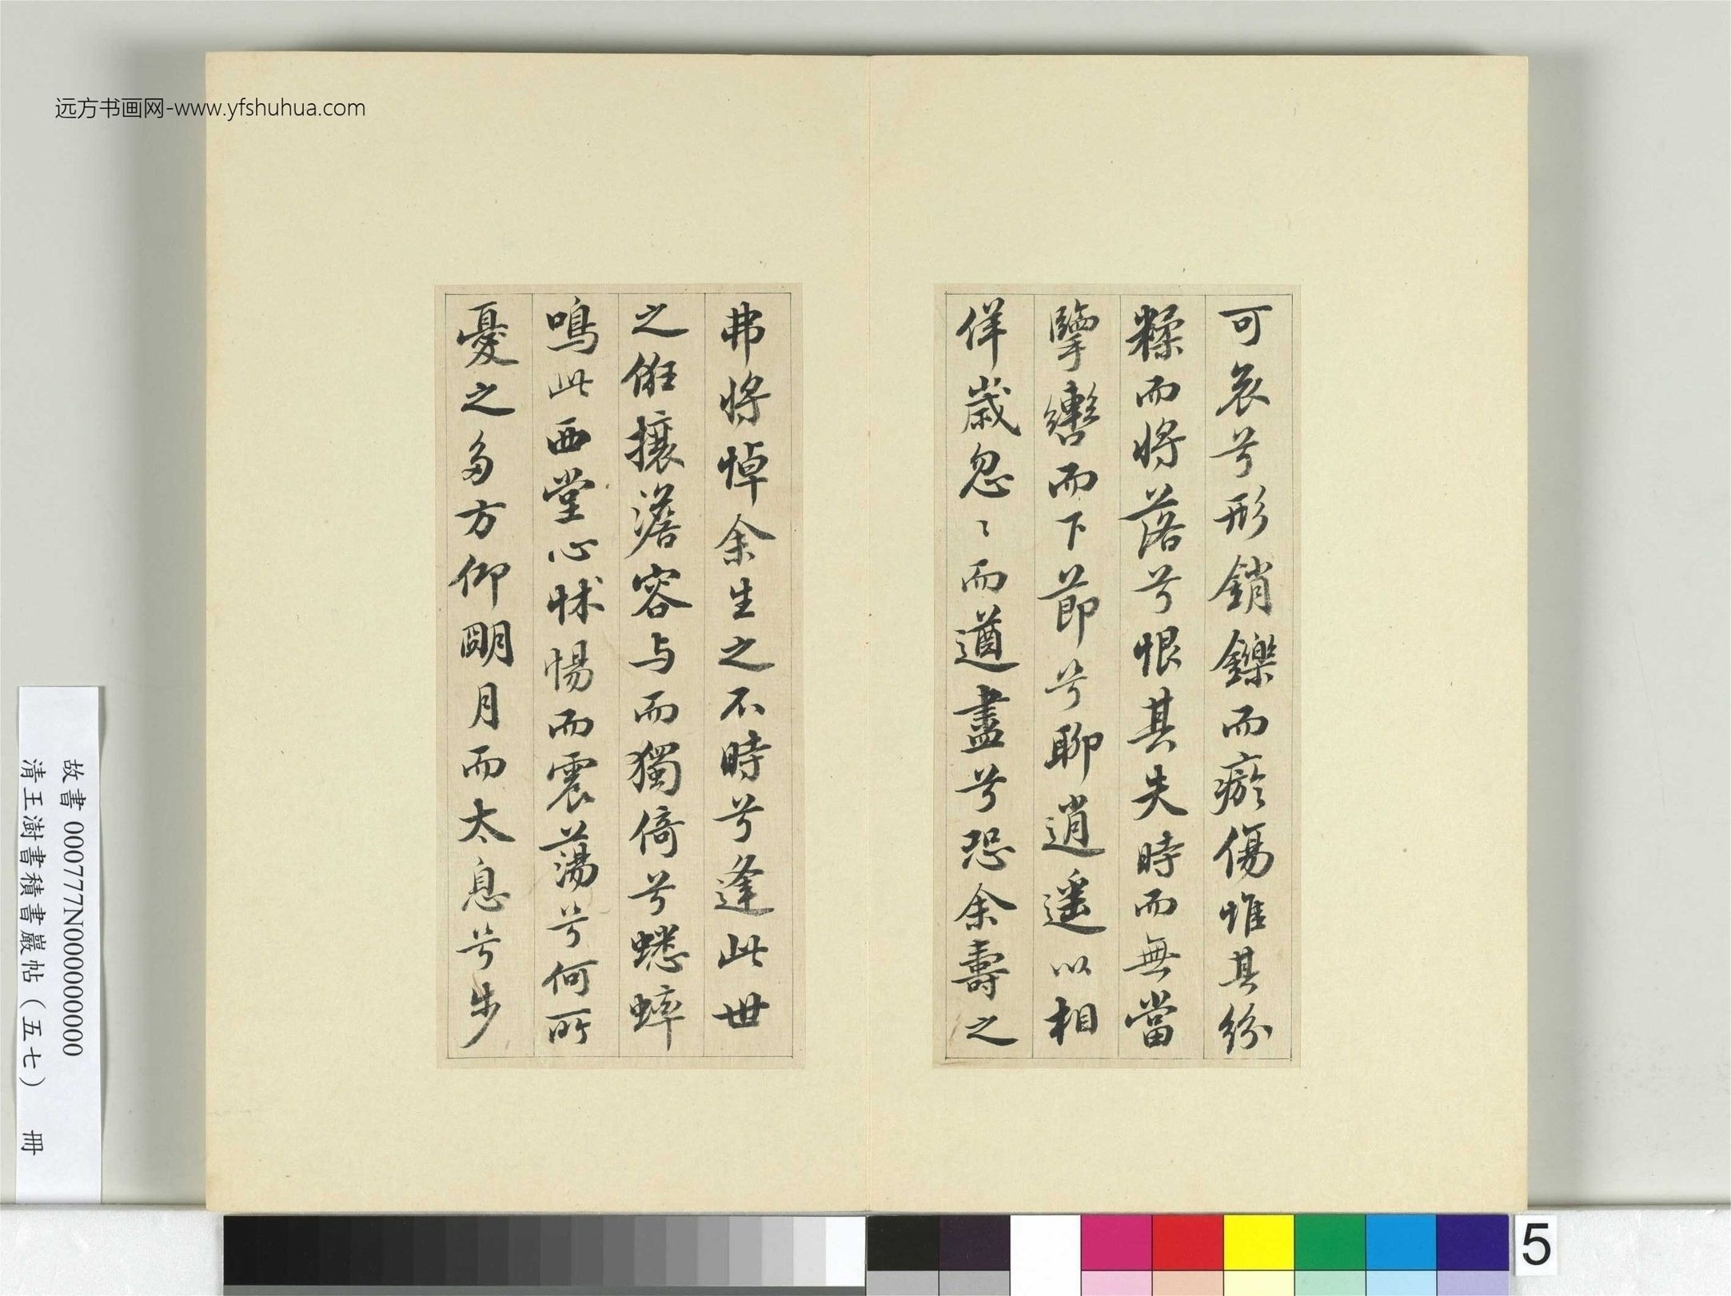 远方书画网-www.yfshuhua.com
可哀兮形銷鑠而瘀傷惟其紛
糅而將落兮恨其失時而無當
擥轡而下節兮聊逍遥以相
佯歲忽〻而遒盡兮恐余壽之
弗將悼余生之不時兮逢此世
之俇攘澹容与而獨倚兮蟋蟀
鳴此西堂心怵惕而震蕩兮何所
憂之多方仰明月而太息兮步
故書 000777N000000000
清王澍書積書巖帖（五七） 冊
5